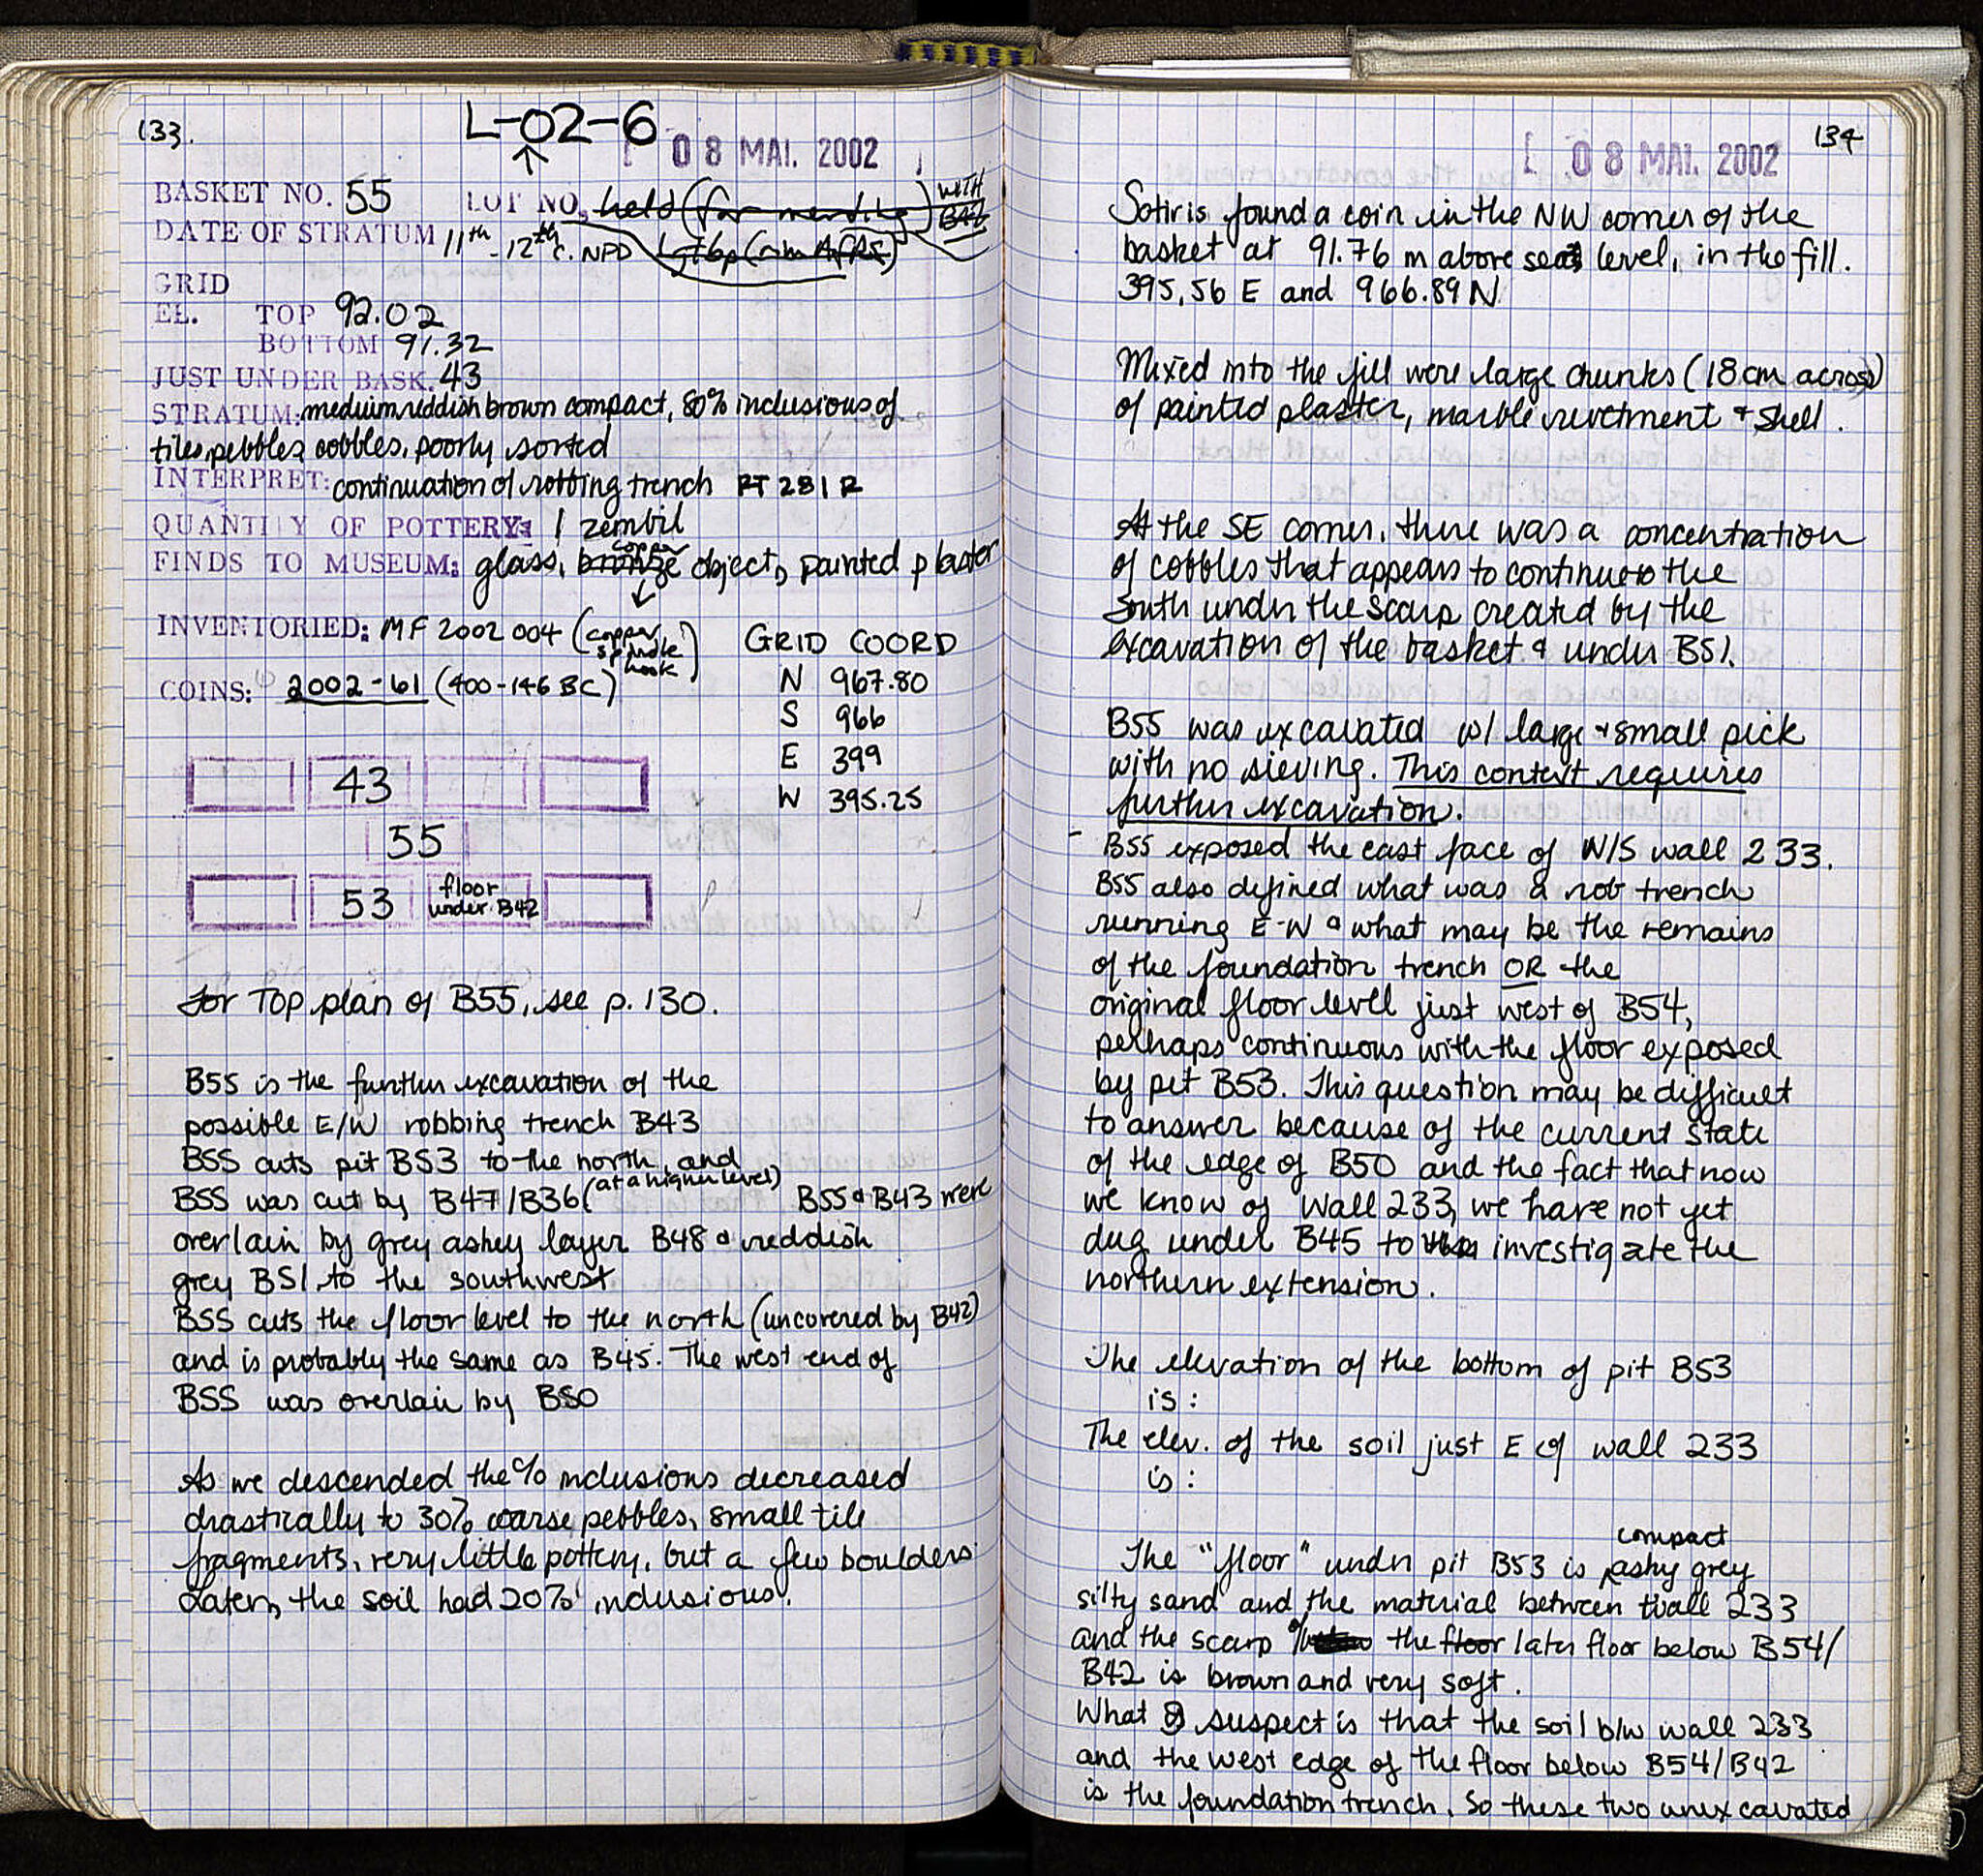 133.
L-02-6
08 MAI. 2002
BASKET NO. 55 LOT NO. held (for mending) WITH B42
DATE OF STRATUM 11th-12th c. NPD
GRID
EL. TOP 92.02
BOTTOM 91.32
JUST UNDER BASK. 43
STRATUM: medium reddish brown compact, 80% inclusions of
tiles, pebbles, cobbles, poorly sorted
INTERPRET: continuation of robbing trench RT 281 R
QUANTITY OF POTTERY: 1 zembil
FINDS TO MUSEUM: glass, bronze copper object, painted plaster
INVENTORIED: MF 2002 004 (copper spindle hook)
COINS: 2002-61 (400-146 BC)
GRID COORD
N 967.80
S 966
E 399
W 395.25
43
55
53 floor under B42
For Top plan of B55, see p. 130.
B55 is the further excavation of the
possible E/W robbing trench B43
B55 cuts pit B53 to the north, and
B55 was cut by B47/B36 (at a higher level) B55 & B43 were
overlain by grey ashey layer B48 & reddish
grey B51 to the southwest
B55 cuts the floor level to the north (uncovered by B42)
and is probably the same as B45. The west end of
B55 was overlain by B50
As we descended the % inclusions decreased
drastically to 30% coarse pebbles, small tile
fragments, very little pottery, but a few boulders
Later, the soil had 20% inclusions.
134
08 MAI. 2002
Sotiris found a coin in the NW corner of the
basket at 91.76 m above sea level, in the fill.
395.56 E and 966.89 N
Mixed into the fill were large chunks (18cm across)
of painted plaster, marble revetment + shell.
At the SE corner, there was a concentration
of cobbles that appears to continue to the
South under the scarp created by the
excavation of the basket & under B51.
B55 was excavated w/ large + small pick
with no sieving. This context requires
further excavation.
- B55 exposed the east face of N/S wall 233.
B55 also defined what was a rob trench
running E-W & what may be the remains
of the foundation trench OR the
original floor level just west of B54,
perhaps continuous with the floor exposed
by pit B53. This question may be difficult
to answer because of the current state
of the edge of B50 and the fact that now
we know of Wall 233, we have not yet
dug under B45 to investigate the
northern extension.
The elevation of the bottom of pit B53
is:
The elev. of the soil just E of wall 233
is:
The "floor" under pit B53 is compact ashy grey
silty sand and the material between wall 233
and the scarp of the floor later floor below B54/
B42 is brown and very soft.
What I suspect is that the soil b/w wall 233
and the west edge of the floor below B54/B42
is the foundation trench. So these two unexcavated